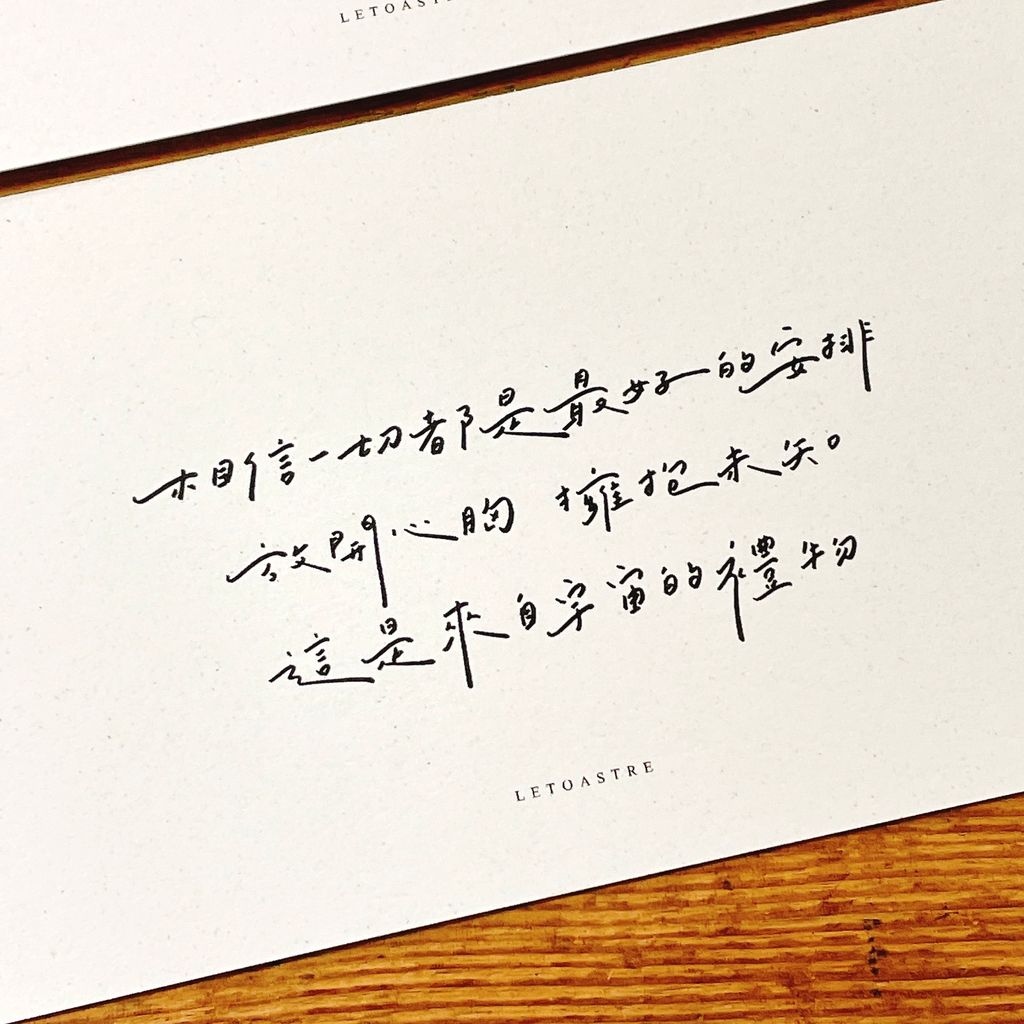 LETOAST
相信一切都是最好的安排
放開心胸 擁抱未知。
這是來自宇宙的禮物
LETOASTRE